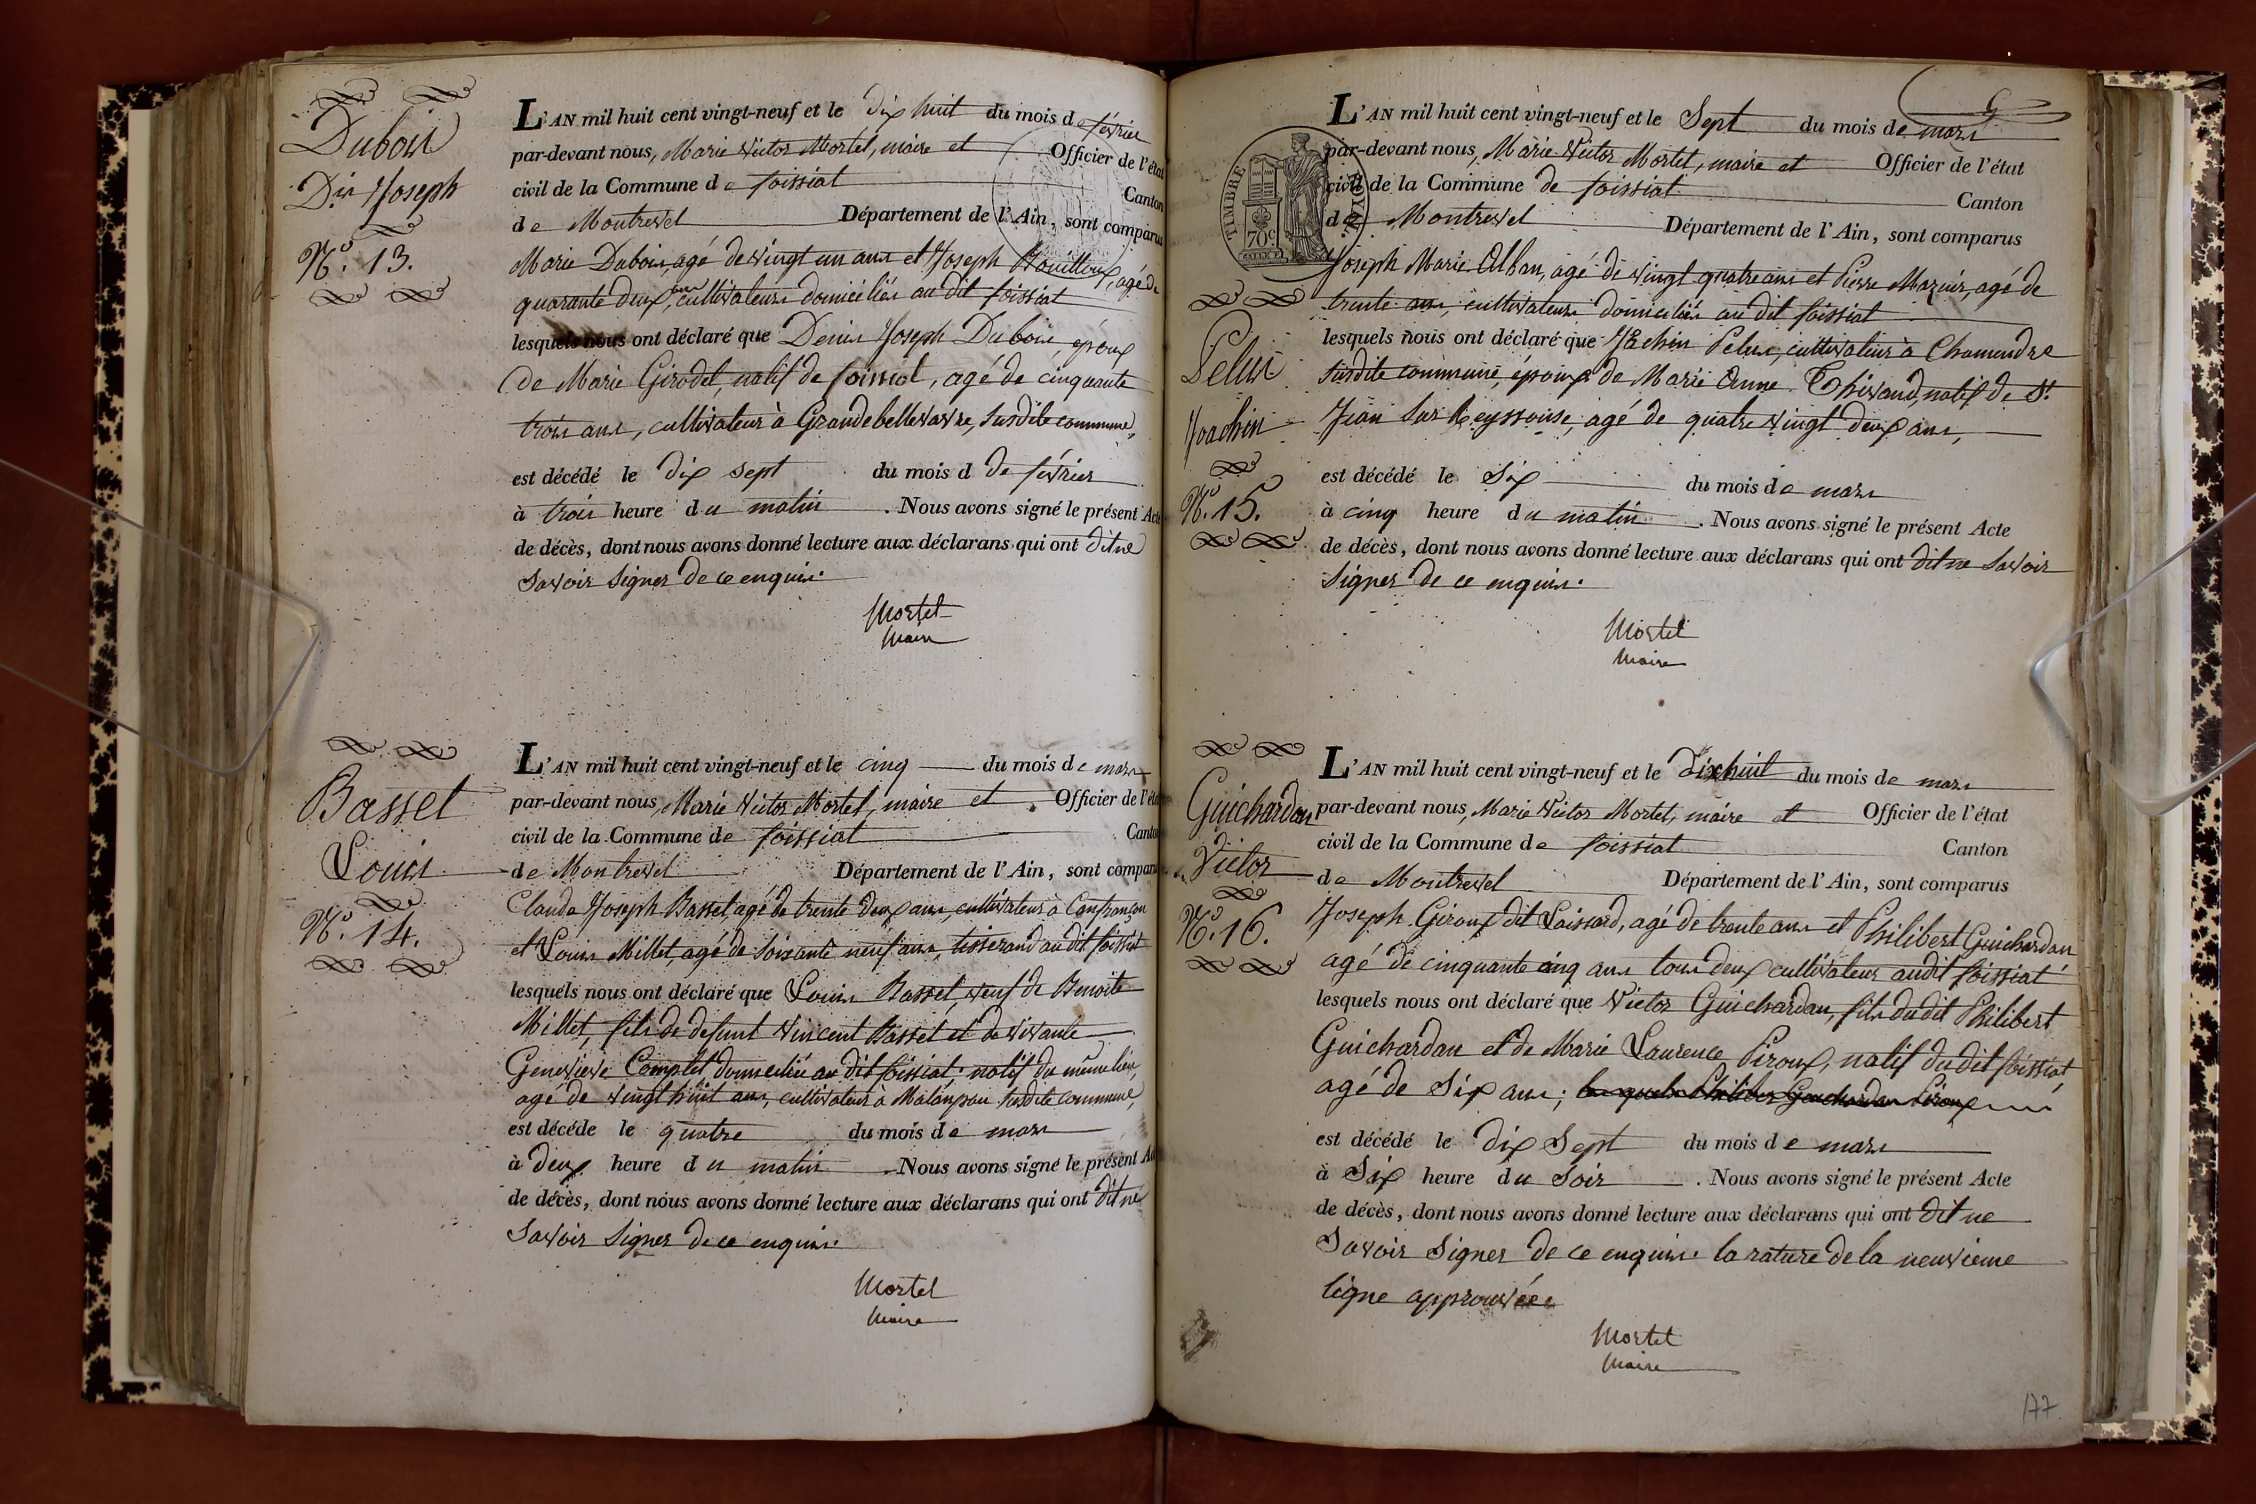 Dubois
Dis Joseph
N.° 13.
L'AN mil huit cent vingt-neuf et le dix huit du mois de février
par-devant nous, Marie Victor Mortel, maire et Officier de l'état
civil de la Commune de foissiat Canton
de Montrevel Département de l'Ain, sont comparus
Marie Dubois, agé de vingt un ans et Joseph Bouilloux, agé de
quarante deux ans, cultivateurs domiciliés au dit foissiat
lesquels nous ont déclaré que Denis Joseph Dubois époux
de Marie Girodet, natif de foissiat, agé de cinquante
trois ans, cultivateur à Grandebellevavre, susdite commune,
est décédé le dix sept du mois d de février
à trois heure du matin . Nous avons signé le présent Acte
de décès, dont nous avons donné lecture aux déclarans qui ont dit ne
savoir signer de ce enquis.
Mortel
Maire
Basset
Louis
N.° 14.
L'AN mil huit cent vingt-neuf et le cinq du mois de mars
par-devant nous, Marie Victor Mortel, maire et Officier de l'état
civil de la Commune de foissiat Canton
de Montrevel Département de l'Ain, sont comparus
Claude Joseph Basset, agé de trente deux ans, cultivateur à Confrançon
et Louis Millet, agé de soixante neuf ans, tisserand au dit foissiat
lesquels nous ont déclaré que Louis Basset, veuf de Benoite
Millet, fils de defunt Vincent Basset et de vivante
Genevieve Complet domiciliée au dit foissiat, natif du même lieu,
agé de vingt huit ans, cultivateur a Malanpau susdite commune,
est décédé le quatre du mois de mars
à deux heure du matin . Nous avons signé le présent Acte
de décès, dont nous avons donné lecture aux déclarans qui ont dit ne
savoir signer de ce enquis.
Mortel
Maire
TIMBRE ROYAL
70c
L'AN mil huit cent vingt-neuf et le Sept du mois de mars
par-devant nous, Marie Victor Mortel, maire et Officier de l'état
civil de la Commune de foissiat Canton
de Montrevel Département de l'Ain, sont comparus
Joseph Marie Alban, agé de vingt quatre ans et Pierre Mazuir, agé de
trente ans, cultivateurs domiciliés au dit foissiat
Pelus
Joachin
N.° 15.
lesquels nous ont déclaré que Joachin Pelus, cultivateur à Chamandre
susdite commune, époux de Marie Anne Thivaud, natif de St.
Jean sur Reyssouse, agé de quatre vingt deux ans,
est décédé le Six du mois de mars
à cinq heure du matin . Nous avons signé le présent Acte
de décès, dont nous avons donné lecture aux déclarans qui ont dit ne savoir
signer de ce enquis.
Mortel
Maire
Guichardan
Victor
N.° 16.
L'AN mil huit cent vingt-neuf et le dix huit du mois de mars
par-devant nous, Marie Victor Mortel, maire et Officier de l'état
civil de la Commune de foissiat Canton
de Montrevel Département de l'Ain, sont comparus
Joseph Giroux dit Laissard, agé de trente ans et Philibert Guichardan
agé de cinquante cinq ans tous deux cultivateurs audit foissiat
lesquels nous ont déclaré que Victor Guichardan, fils du dit Philibert
Guichardan et de Marie Laurence Piroux, natif du dit foissiat,
agé de six ans; Philibert Guichardan Piroux
est décédé le dix sept du mois de mars
à Six heure du Soir . Nous avons signé le présent Acte
de décès, dont nous avons donné lecture aux déclarans qui ont dit ne
savoir signer de ce enquis. la rature de la neuvieme
ligne approuvée
Mortel
Maire
177